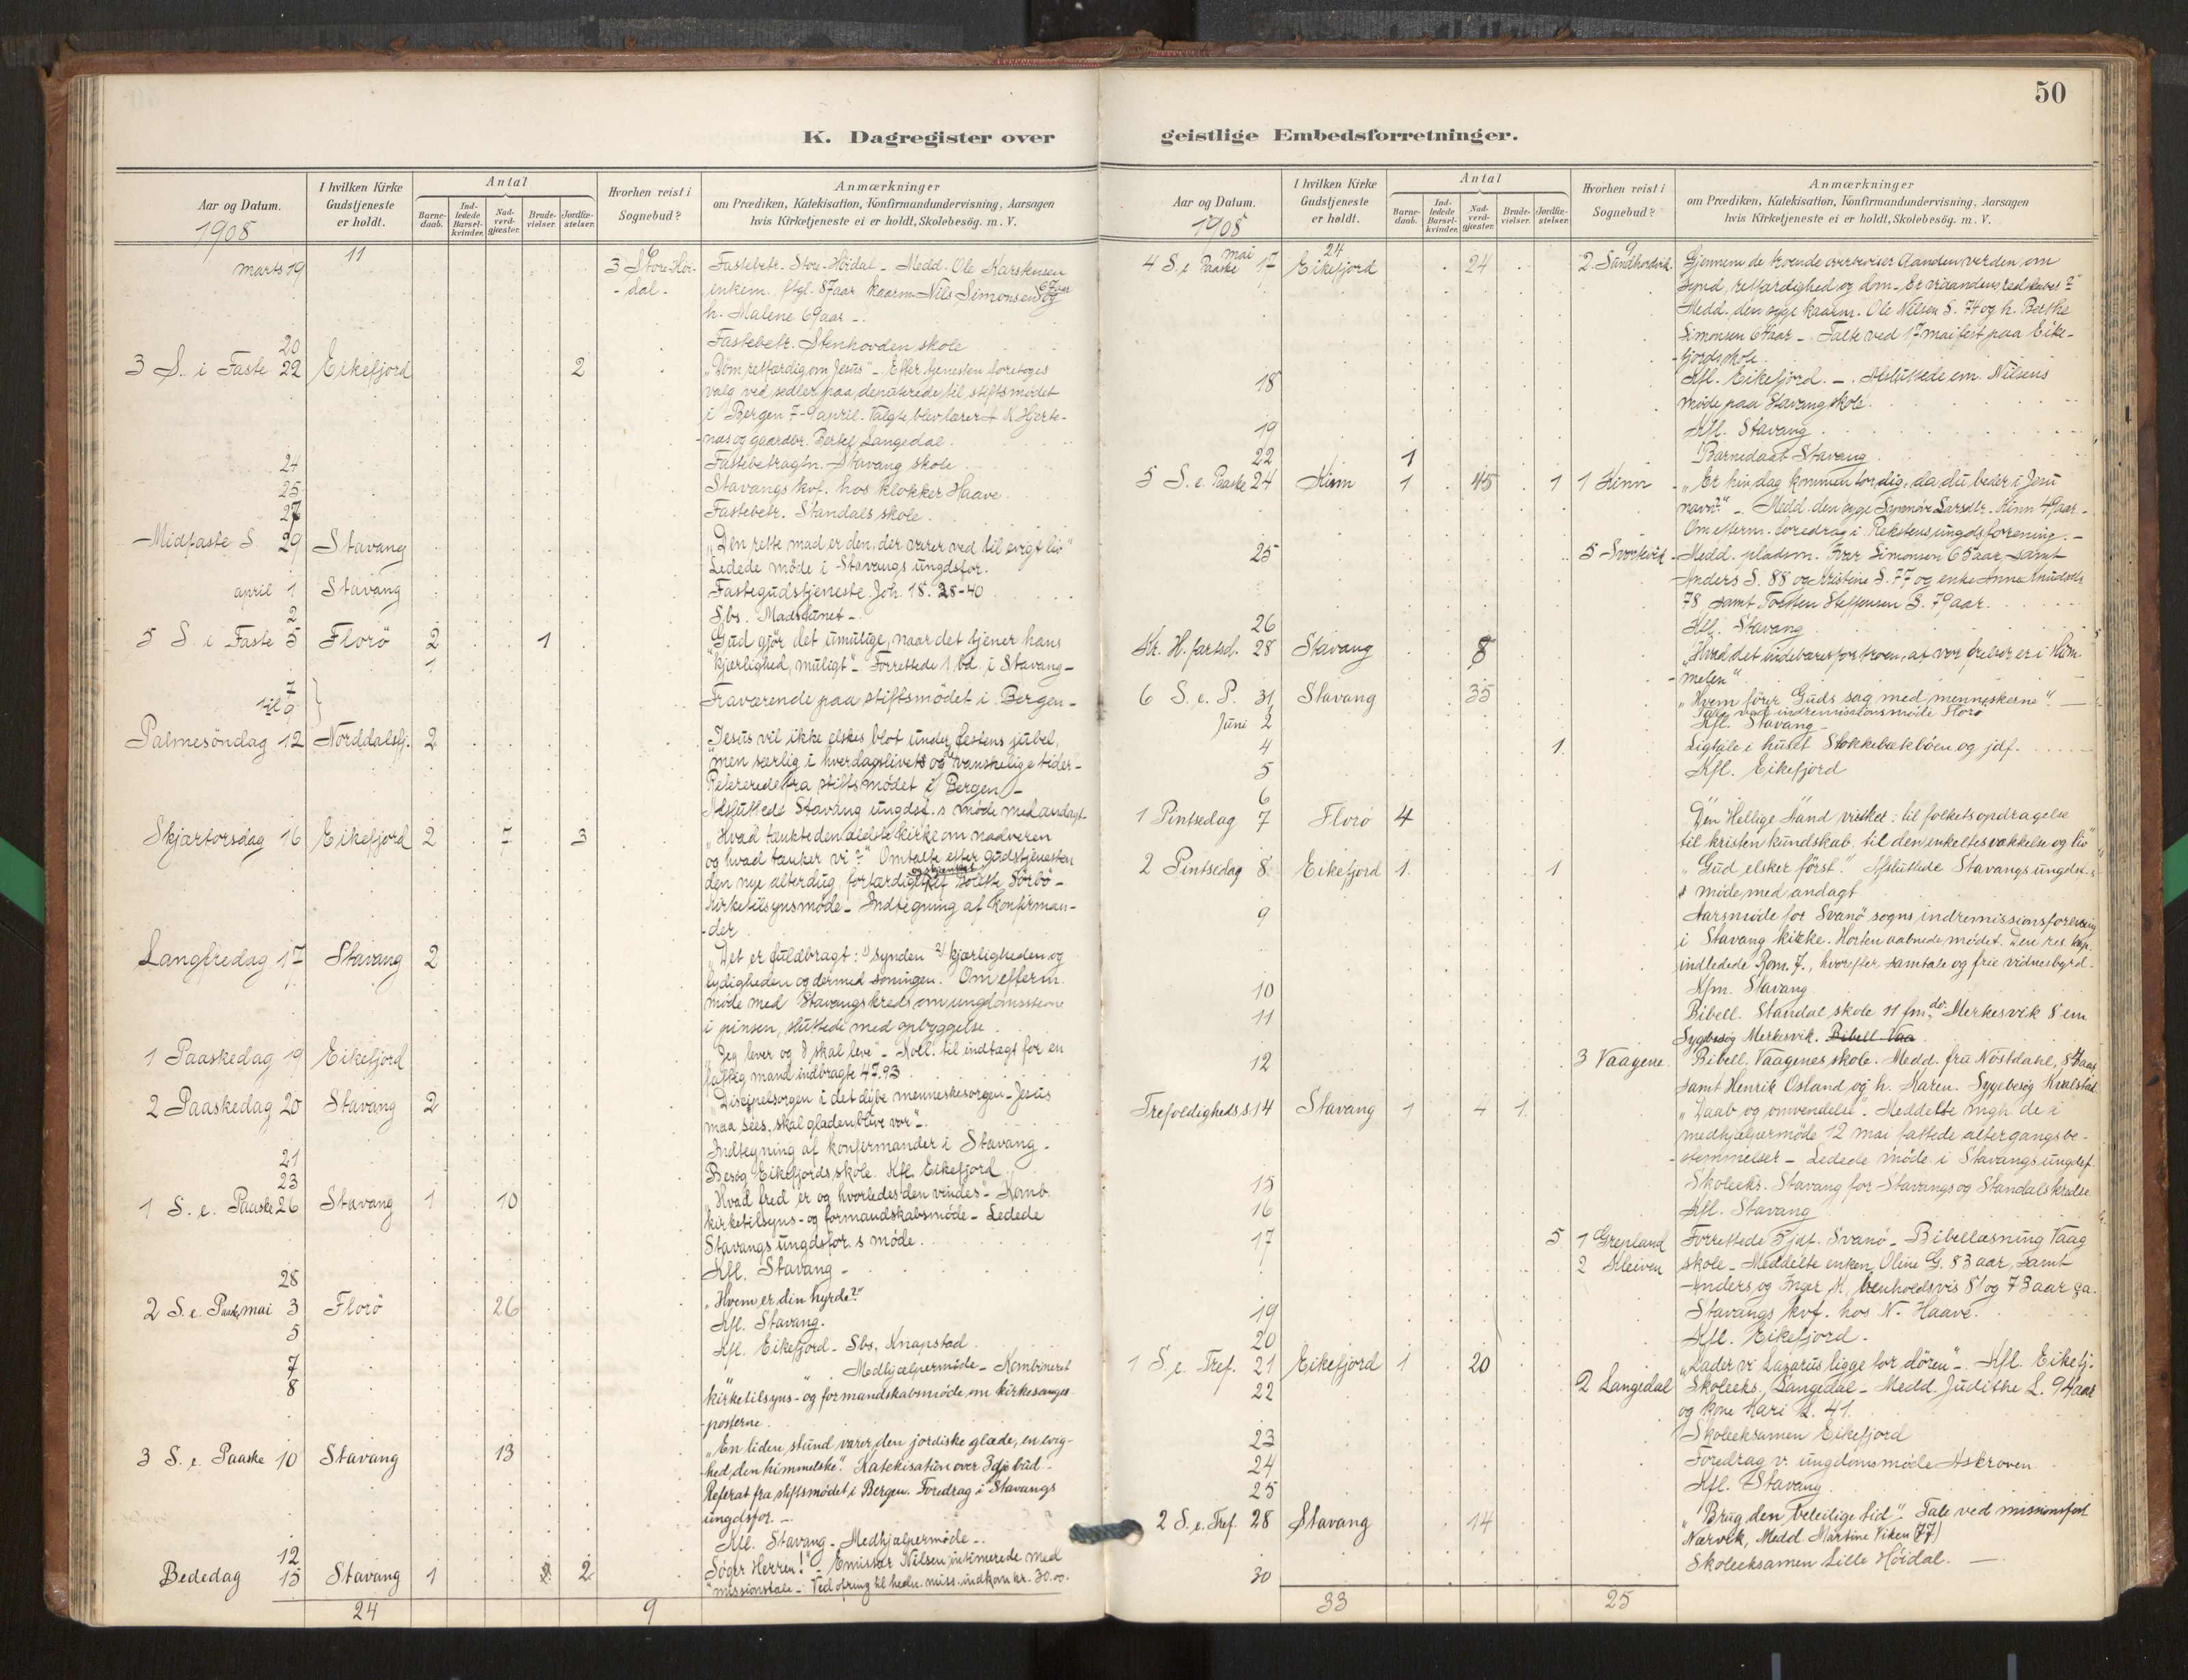 50
K. Dagregister over
Aar og Datum.
1908
I hvilken Kirke Gudstjeneste er holdt.
Antal
Barne-daab.
Ind-ledede Barsel-kvinder.
Nad-verd-gjæster.
Brude-vielser.
Jordfæ-stelser.
Hvorhen reist i Sognebud?
Anmærkninger
om Prædiken, Katekisation, Konfirmandundervisning, Aarsagen
hvis Kirketjeneste ei er holdt, Skolebesög. m. V.
11 6
marts 19 3 Store-Höi- Fastebetr. Store-Höidal _ Medd. Ole Karstensen
-dal- enkem. ftgl. 87aar kaarm Nils Simonsen 67aar og
h. Malene 69aar _.
20 Fastebetr. Stenhovden skole
3 S. i Faste 22 Eikefjord 2 "Döm retfærdig om Jesus" _ Efter tjenesten foretoges
valg ved sedler paa deputerede til stiftsmödet
i Bergen 7-9 april. Valgte blev lærer A K Hjerte-
-næs og gaardbr. Bertel Langedal.
24 Fastebetragtn. Stavang skole
25 Stavangs kvf. hos klokker Haave.
27 Fastebetr. Standals skole.
Midfaste S 29 Stavang "Den rette mad er den, der varer ved til evigt liv"
Ledede möde i Stavangs ungdsfor.
april 1 Stavang Fastegudstjeneste Joh. 18. 28-40
2 Sbs. Madstunet _
5 S i Faste 5 Florö 2 1 Gud gjör det umulige, naar det tjener hans
1 kjærlighed, muligt" _ Forrettede 1 bd. i Stavang _
7
til 9 Fraværende paa stiftsmödet i Bergen _
Palmesöndag 12 Norddalsfj. 2 Jesus vil ikke elskes blot under festens jubel,
men særlig i hverdagslivets og vanskelige tider _
Refererede fra stiftsmödet i Bergen _
Afsluttede Stavang ungdsf.s möde med andagt
Skjærtorsdag 16 Eikefjord 2 7 3 "Hvad tænkte den ældste kirke om nadveren
og hvad tænker vi?" Omtalte efter gudstjenesten
den nye alterdug, forfærdiget og skjænket af Sörbö _
Kirketilsynsmöde _ Indtegning af konfirman-
-der
Langfredag 17 Stavang 2 "Det er fuldbragt: 1) synden 2) kjærligheden og
lydigheden og dermed soningen." Om efterm.
möde med Stavangs kreds om ungdomsstevne
i pinsen, sluttede med opbyggelse.
1 Paaskedag 19 Eikefjord "Jeg lever og I skal leve" _ Koll. til indtægt for en
fattig mand indbragte 47.93
2 Paaskedag 20 Stavang 2 "Disipelsorgen i det dybe menneskesorgen _ Jesus
maa sees, skal glæden blive vor" _
Indtegning af konfirmander i Stavang _
21 Besög Eikefjords skole. Kfl. Eikefjord
23
1 S. e. Paaske 26 Stavang 1 10 "Hvad fred er og hvorledes den vindes" _ Komb.
kirketilsyns- og formandskabsmöde _ Ledede
Stavangs ungdsfor.s möde.
28 Kfl. Stavang _
2 S. e. Paaske mai 3 Florö 26 "Hvem er din hyrde?"
5 Kfl. Stavang.
7 Kfl. Eikefjord _ Sbs. Knapstad
8 " " Medhjælpermöde _ Kombineret
kirketilsyns- og formandskabsmöde om kirkesanger-
-posterne
3 S. e. Paaske 10 Stavang 13 "En liden stund varer den jordiske glæde, en evig-
-hed, den himmelske". Katekisation over 3dje bud _
Referat fra stiftsmödet i Bergen. Foredrag i Stavangs
ungdsfor. _
12 Kfl. Stavang _ Medhjælpermöde _.
Bededag 15 Stavang 1 2 Söger Herren!" _ Emissær Nilsen intimerede med
missionstale _ Ved ofring til hedn. miss. indkom kr. 30.00.
24 9
geistlige Embedsforretninger.
Aar og Datum.
1908
I hvilken Kirke Gudstjeneste er holdt.
Antal
Barne-daab.
Ind-ledede Barsel-kvinder.
Nad-verd-gjæster.
Brude-vielser.
Jordfæ-stelser.
Hvorhen reist i Sognebud?
Anmærkninger
om Prædiken, Katekisation, Konfirmandundervisning, Aarsagen
hvis Kirketjeneste ei er holdt, Skolebesög. m. V.
24 9
4 S. e Paaske mai 17 Eikefjord 24 2 Sandhordvik. Gjennem de troende overbeviser Aanden verden om
synd, retfærdighed og dom _ Er vi aandens redskaber?
Medd. den syge kaarm. Ole Nilsen S. 74 og h. Berthe
Simonsen 67aar _ Talte ved 17 mai fest paa Eike-
-fjord skole.
18 Kfl. Eikefjord. _ Afsluttede em. Nilsens
möde paa Stavang skole.
19 Kfl. Stavang
22 1 Barnedaab Stavang
5 S. e. Paaske 24 Kinn 1 45 1 1 Kinn "Er hin dag kommen for dig, da du beder i Jesu
navn?" _ Medd. den syge Synnöve Larsdtr. Kinn 49aar _
Om efterm. foredrag i Rekstens ungdsforening. _
25 5 Svortevik _ Medd. pladsm. Ivar Simonsen 65aar samt
Anders S. 88 og Kristine S. 77 og enke Anna Knudsdtr
78, samt Torsten Steffensen S. 79aar.
26 Kfl. Stavang
Kr. H. fartsd. 28 Stavang 8 "Hvad det indebærer for troen, at vor frelser er i him-
-melen"
6 S. e. P. 31 Stavang 35 "Hvem förer Guds sag med menneskerne". _
Tale ved indremissionsmöde Florö
Juni 2 Kfl. Stavang
4 1 Ligtale i huset Stokkebækböen og jdf.
5 Kfl. Eikefjord
6
1 Pintsedag 7 Florö 4 Den Hellige Aand virker: til folkets opdragelse
til kristen kundskab, til den enkeltes vækkelse og liv"
2 Pintsedag 8 Eikefjord 1 1 "Gud elsker först." Afsluttede Stavangs ungdsf.s
möde med andagt
9 Aarsmöde for Svanö sogns indremissionsforening
i Stavang kirke. Horten aabnede mödet. Den res. kap.
indledede Rom. 7., hvorefter samtale og frie vidnesbyrd.
10 Kfm. Stavang
11 Bibell. Standal skole 11 fm., do Merkesvik 8 em
Sygbesög Merkesvik. Bibell Vaa
12 3 Vaagene Bibell. Vaagenes skole. Medd. fru Nöstdahl, 87aar
samt Henrik Osland og h. Karen. Sygebesög Kvalstad
Trefoldigheds s. 14 Stavang 1 4 1 "Daab og omvendelse". Meddelte mgh. de i
medhjælpermöde 12 mai fattede altergangsbe-
-stemmelser _ Ledede möde i Stavangs ungdsf.
15 Skoleeks. Stavang for Stavangs og Standals kredse
16 Kfl. Stavang
17 5 1 Grepland Forrettede 5 jdf. Svanö _ Bibellæsning Vaag
2 Kleiven skole _ Meddelte enken Oline G. 83 aar, samt
Anders og Inger K, henholdsvis 81 og 73 aar ca.
19 Stavangs kvf. hos N. Haave.
20 Kfl. Eikefjord.
1 S. e. Tref. 21 Eikefjord 1 20 "Lader vi Lazarus ligge for dören" _. Kfl. Eikefj.
22 2 Langedal Skoleeks. Langedal _ Medd. Judithe L. 94aar
og kone Kari L. 41.
23 Skoleeksamen Eikefjord
24 Foredrag v. ungdomsmöde Askroven
25 Kfl. Stavang
2 S. e. Tref. 28 Stavang 14 "Brug den beleilige tid". Tale ved missionsfest
Nærvik, Medd. Martine Viken (77)
30 Skoleeksamen Lille Höidal. _
33 25